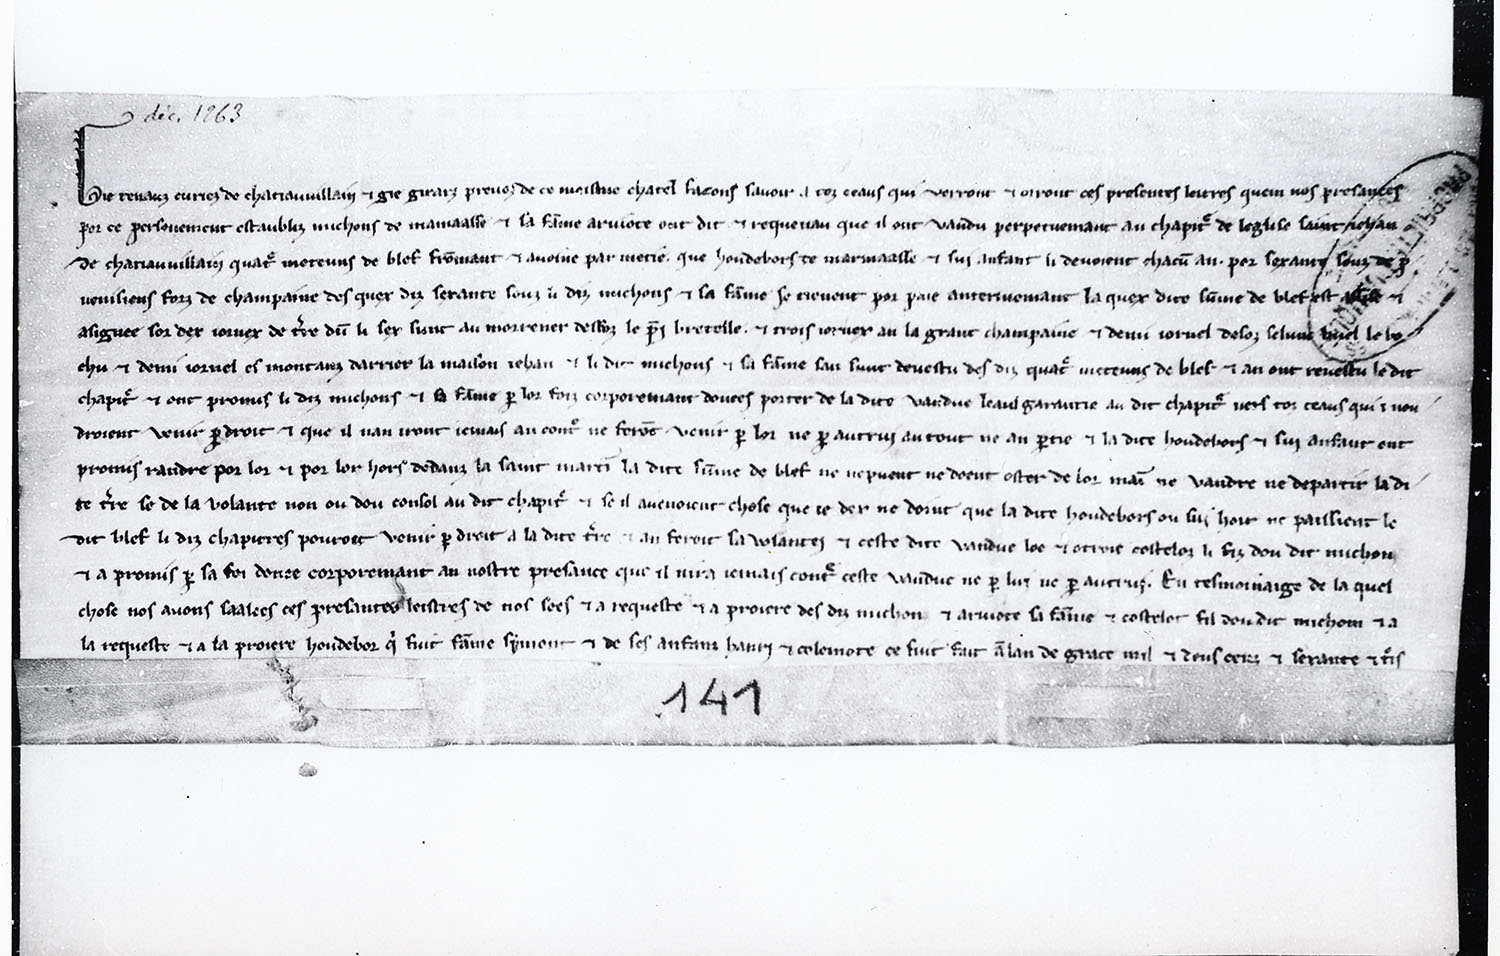 déc. 1263
Gie renauz curiez de chatiauuillain ⁊ gie girarz preuoz de ce meisme chatel facons sauoir a toz ceaus qui verront ⁊ orront ces presentes letres quem nos presances
por ce personement establiz michons de marmaasse ⁊ sa fāme aruiote ont dit ⁊ requeneu que il ont vandu perpetuemant au chapitᷓ de leglise saint iehan
de chatiauuillain quatᷓ meteuns de blef fromant ⁊ auoine par metie. que houdebors de marmaasse ⁊ sui anfant li deuoient chacū an. por sexante souz de p̄
uenisiens forz de champaine des quex diz sexante souz li diz michons ⁊ sa fāme se tienent por paie anterinemant la quex dite sūme de blef est assise ⁊
asignee sor dex iornex de t̄re dū li sex sunt au mortener desoz le p̄ bretelle. ⁊ trois iornex an la grant champaine ⁊ demi iornel desoz le bo
chu ⁊ demi iornel es montanz darrier la maison iehan ⁊ li dit michons ⁊ sa fāme san sunt deuestu des diz quatᷓ meteuns de blef ⁊ an ont reuestu le dit
chapitᷓ ⁊ ont promis li diz michons ⁊ sa fāme p̱ lor foiz corporemant donees porter de la dite vandue leaul garantie au dit chapitᷓ uers toz ceaus qui i uou
droient venir p̱ droit ⁊ que il nan iront iemais an contᷓ ne ferōt venir p̱ lor ne p̱ autrui an tout ne an p̱tie ⁊ la dite houdebors ⁊ sui anfant ont
promis randre por lor ⁊ por lor hors dedanz la saint martī la dite sūme de blef ne ne puent ne doent oster de lor maī ne vandre ne departir la di
te t̄re se de la volante non ou dou consol au dit chapitᷓ ⁊ se il auenoient chose que ie dex ne doint que la dite houdebors ou sui hoir ne paissient le
dit blef li diz chapitres pouroit venir p̱ droit a la dite t̄re ⁊ an feroit sa volantei ⁊ ceste dite vandue loe ⁊ otroie costeloz li fiz dou dit michon
⁊ a promis p̱ sa foi donee corporemant an nostre presance que il nira iemais contᷓ ceste vandue ne p̱ lui ne p̱ autrui. En tesmoinaige de la quel
chose nos auons saalees ces presantes leistres de nos sées ⁊ a requeste ⁊ a proiere des diz michon ⁊ aruiote sa fāme ⁊ costelot fil dou dit michon ⁊ a
la requeste ⁊ a la proiere houdebor qͥ fuit fāme symont ⁊ de ses anfanz ⁊ colemote ce fuit fait ā lan de grace mil ⁊ deus cenz ⁊ sexante ⁊ tͬis
141